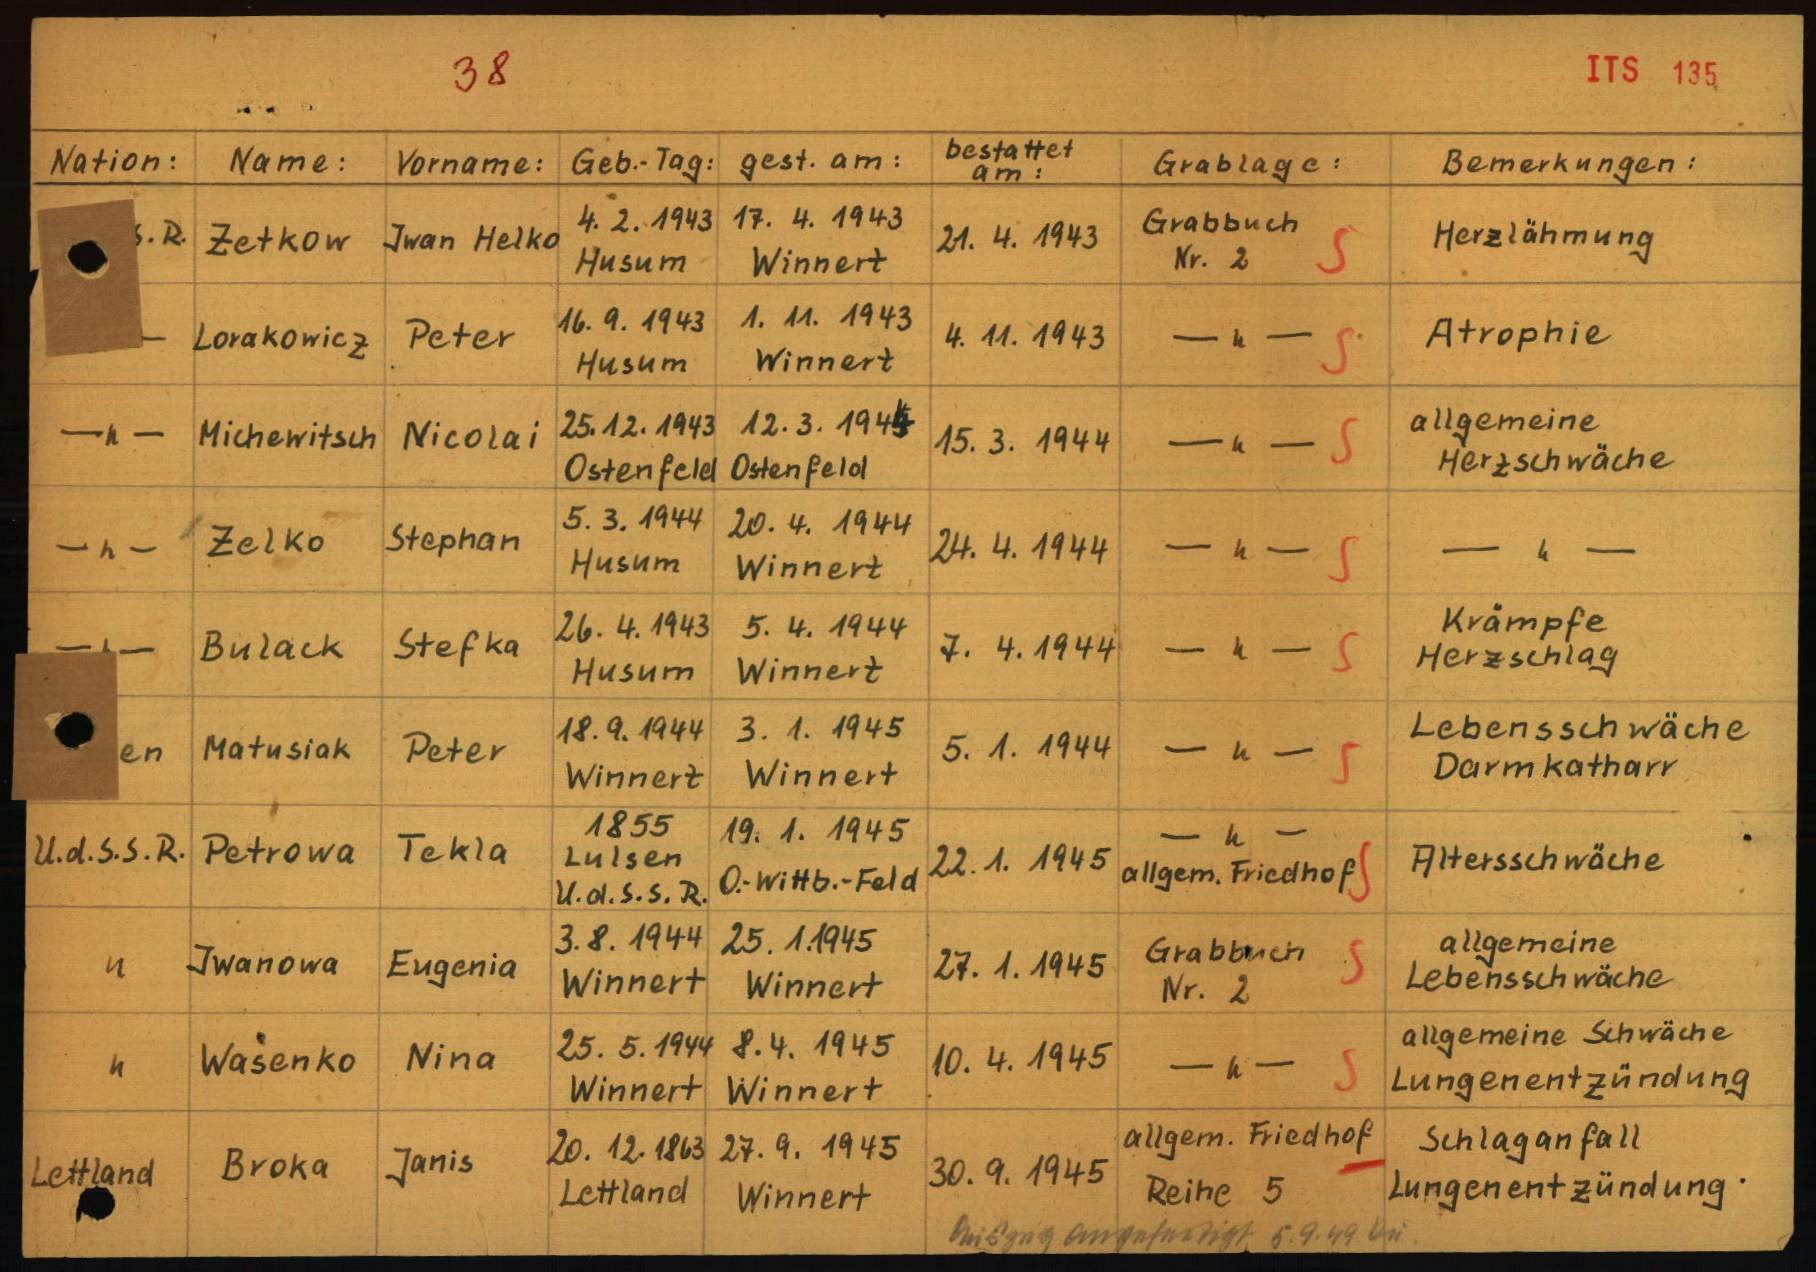 38
ITS 135
Nation: Name: Vorname: Geb.-Tag: gest. am: bestattet am: Grablage: Bemerkungen:
S.R. Zetkow Jwan Helko 4. 2. 1943 17. 4. 1943 21. 4. 1943 Grabbuch Herzlähmung
Husum Winnert Nr. 2
— Lorakowicz Peter 16. 9. 1943 1. 11. 1943 4. 11. 1943 — " — Atrophie
Husum Winnert
— " — Michewitsch Nicolai 25. 12. 1943 12. 3. 1944 15. 3. 1944 — " — allgemeine
Ostenfeld Ostenfeld Herzschwäche
— " — Zelko Stephan 5. 3. 1944 20. 4. 1944 24. 4. 1944 — " — — " —
Husum Winnert
— " — Bulack Stefka 26. 4. 1943 5. 4. 1944 7. 4. 1944 — " — Krämpfe
Husum Winnert Herzschlag
en Matusiak Peter 18. 9. 1944 3. 1. 1945 5. 1. 1944 — " — Lebensschwäche
Winnert Winnert Darmkatharr
U.d.S.S.R. Petrowa Tekla 1855 19. 1. 1945 22. 1. 1945 — " — Altersschwäche
Lulsen O.-Wittb.-Feld allgem. Friedhof
U.d.S.S.R.
" Jwanowa Eugenia 3. 8. 1944 25. 1. 1945 27. 1. 1945 Grabbuch allgemeine
Winnert Winnert Nr. 2 Lebensschwäche
" Wasenko Nina 25. 5. 1944 8. 4. 1945 10. 4. 1945 — " — allgemeine Schwäche
Winnert Winnert Lungenentzündung
Lettland Broka Janis 20. 12. 1863 27. 9. 1945 30. 9. 1945 allgem. Friedhof Schlaganfall
Lettland Winnert Reihe 5 Lungenentzündung.
Auszug angefertigt 5.9.49